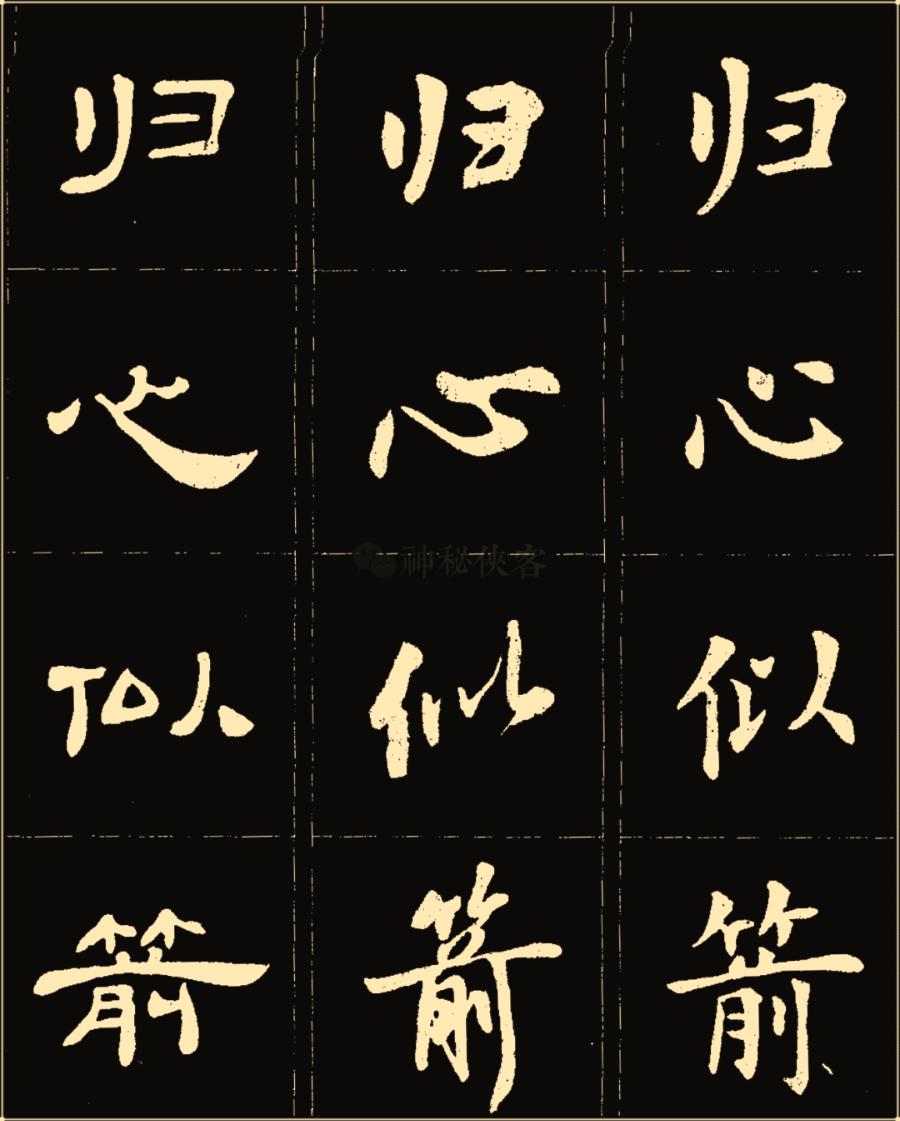 归 归 归
心 心 心
似 似 似
箭 箭 箭
神秘侠客